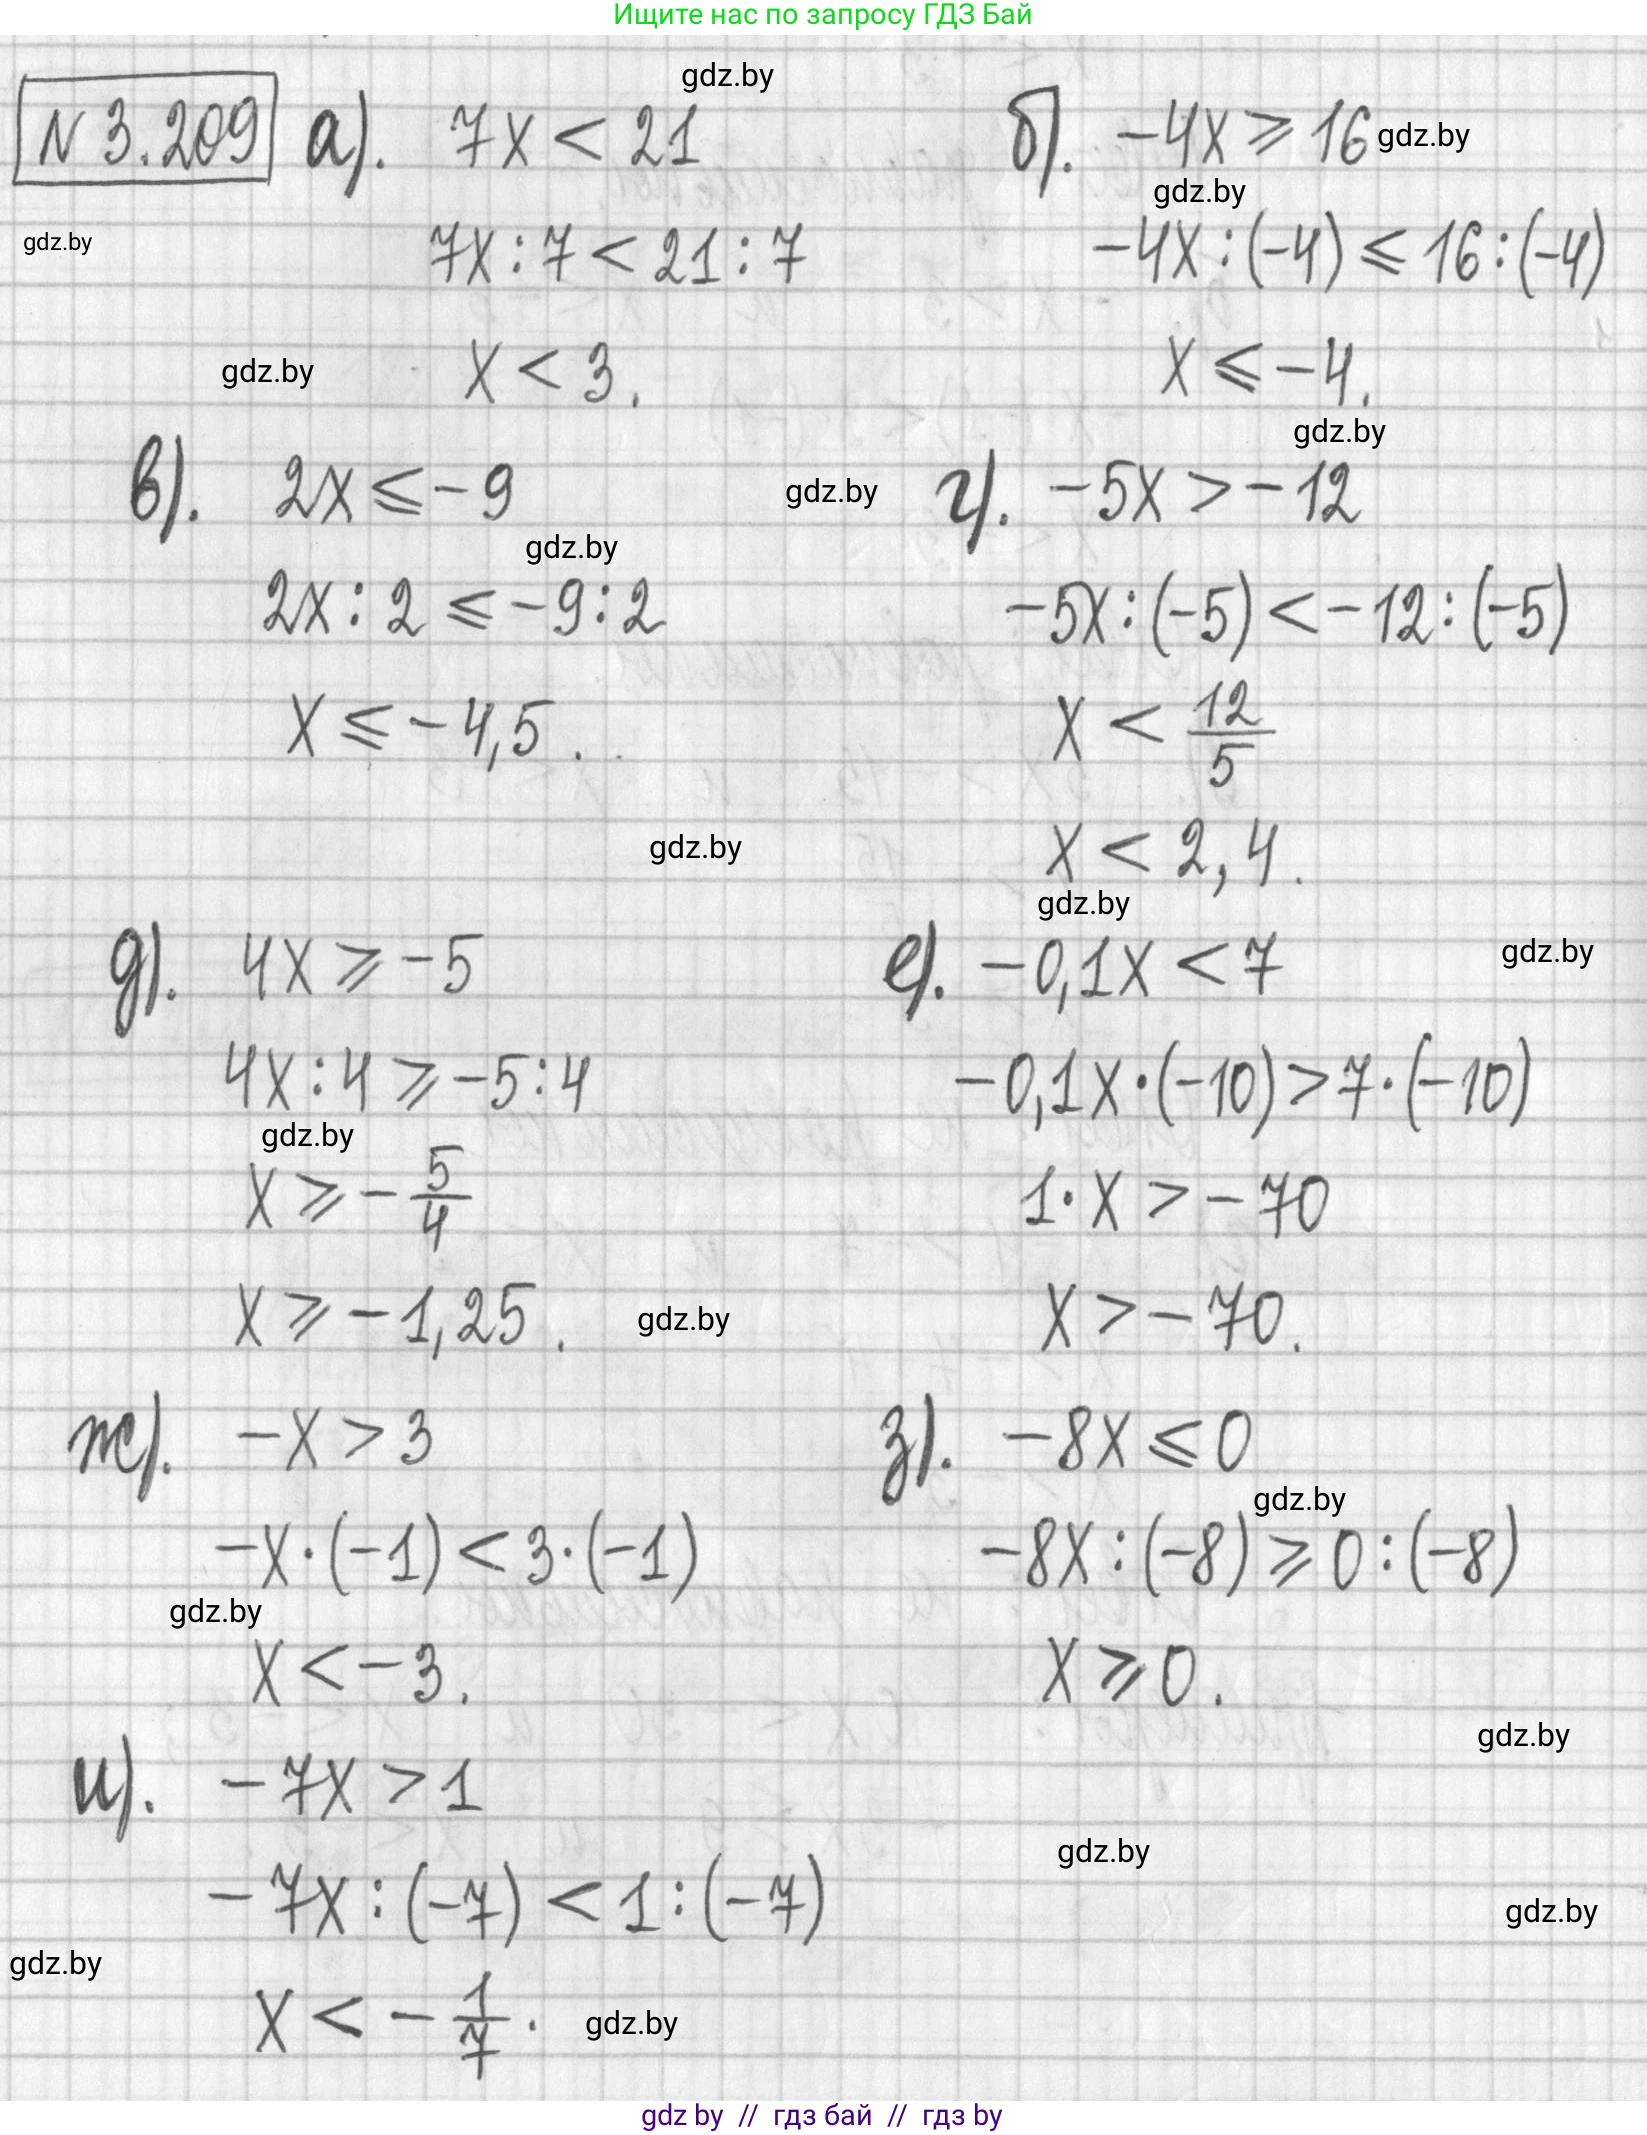 Ищите нас по запросу ГДЗ Бай
gdz.by
N 3.209 а). 7x < 21
б). -4x ⩾ 16 gdz.by
gdz.by
gdz.by
7x : 7 < 21 : 7
-4x : (-4) ⩽ 16 : (-4)
gdz.by
x < 3.
x ⩽ -4.
gdz.by
в). 2x ⩽ -9
gdz.by
г). -5x > -12
gdz.by
2x : 2 ⩽ -9 : 2
-5x : (-5) < -12 : (-5)
x ⩽ -4,5.
x < 12/5
gdz.by
x < 2,4.
gdz.by
д). 4x ⩾ -5
е). -0,1x < 7
gdz.by
4x : 4 ⩾ -5 : 4
-0,1x · (-10) > 7 · (-10)
gdz.by
x ⩾ - 5/4
1 · x > -70
x ⩾ -1,25.
gdz.by
x > -70.
ж). -x > 3
з). -8x ⩽ 0
gdz.by
-x · (-1) < 3 · (-1)
-8x : (-8) ⩾ 0 : (-8)
gdz.by
x < -3.
x ⩾ 0.
gdz.by
и). -7x > 1
gdz.by
-7x : (-7) < 1 : (-7)
gdz.by
gdz.by
x < - 1/7.
gdz.by
gdz by // гдз бай // гдз by